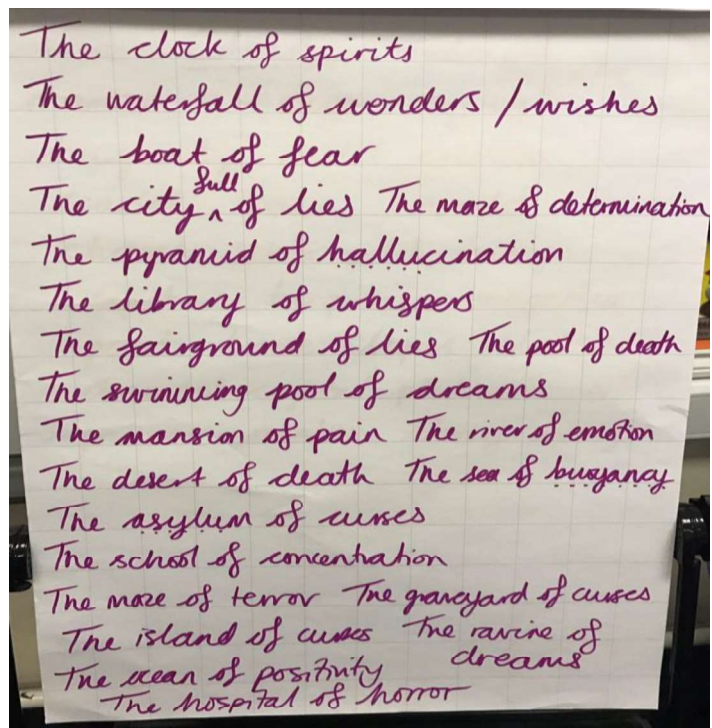 The clock of spirits
The waterfall of wonders / wishes
The boat of fear
The city full of lies The maze of determination
The pyramid of hallucination
The library of whispers
The fairground of lies The pool of death
The swimming pool of dreams
The mansion of pain The river of emotion
The desert of death The sea of buoyancy
The asylum of curses
The school of concentration
The maze of terror The graveyard of curses
The island of curses The ravine of
dreams
The ocean of positivity
The hospital of horror